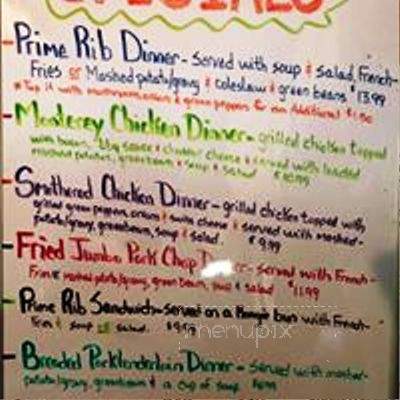 SPECIALS
- Prime Rib Dinner - Served with soup & salad, French-
Fries or Mashed potato/gravy & coleslaw & green beans $13.99
* Top it with mushroom, onion & green peppers for an Additional $1.50
- Monterey Chicken Dinner - grilled chicken topped
with bacon, bbq sauce & cheddar cheese & served with loaded
mashed potatoes, greenbeans & soup & salad $10.99
- Smothered Chicken Dinner - grilled chicken topped with
grilled green peppers, onions & swiss cheese & served with mashed-
potato/gravy, greenbeans, soup & salad. $9.99
- Fried Jumbo Pork Chop Dinner - served with French-
Fries mashed potato/gravy, green beans, soup & salad $11.99
- Prime Rib Sandwich - served on a Hoagie bun with French-
Fries & soup or salad. $9.50
menupix
- Breaded Porktenderloin Dinner - Served with mashed-
potato/gravy, greenbeans & a cup of soup